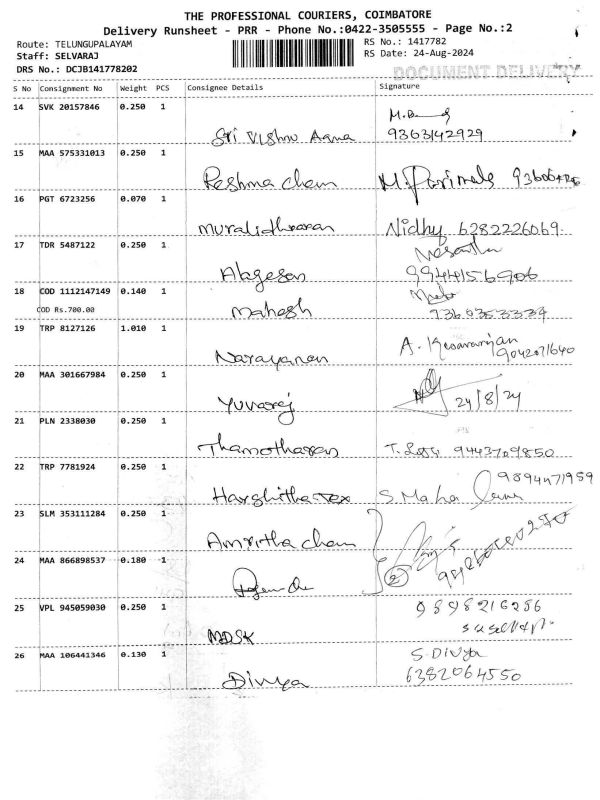 THE PROFESSIONAL COURIERS, COIMBATORE
Delivery Runsheet - PRR - Phone No.:0422-3505555 - Page No.:2
Route: TELUNGUPALAYAM
RS No.: 1417782
Staff: SELVARAJ
RS Date: 24-Aug-2024
DRS No.: DCJB141778202
DOCUMENT DELIVERY
S No Consignment No Weight PCS Consignee Details Signature
14 SVK 20157846 0.250 1
Sri Vishnu 9363142929
15 MAA 575331013 0.250 1
Reshma Chem M. Parimala
16 PGT 6723256 0.070 1
Muralidharan Nidhy 6282226069.
17 TDR 5487122 0.250 1
Vasantha
Alagesan 9944156906
18 COD 1112147149 0.140 1
COD Rs.700.00 Mahesh
19 TRP 8127126 1.010 1
A. Kesavarajan
Narayanan 9042071640
20 MAA 301667984 0.250 1
Yuvaraj 24/8/24
21 PLN 2338030 0.250 1
Thamotharan T. 9443709850
22 TRP 7781924 0.250 1
9894471959
Harshitha Tex S. Maha
23 SLM 353111284 0.250 1
Amritha Chem
24 MAA 866898537 0.180 1
2
25 VPL 945059030 0.250 1
9898216286
MDSK
26 MAA 106441346 0.130 1
S. Divya
Divya 6382064550